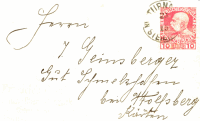 Herrn
J Geinsberger
Gut Schmelzhofen
bei Wolfsberg
Kärnten
10 10